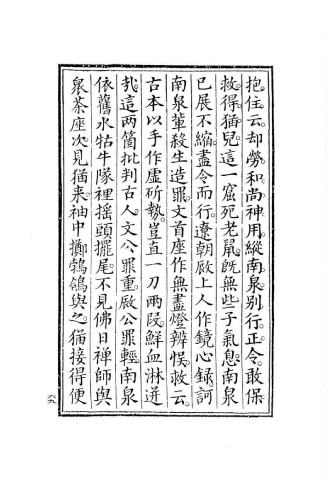 抱住云。却勞和尚神用。縱南泉別行。正令。敢保
救得猫兒。這一窟死老鼠。旣無些子氣息。南泉
已展不縮。盡令而行。遼朝厰上人作鏡心錄。訶
南泉軰殺生造罪。文首座作無盡燈辨悞。救云。
古本以手作虛斫埶。豈直一刀兩段。鮮血淋迸
哉。這两箇批判古人。文公罪重。厰公罪輕。南泉
依舊水牯牛隊裡揺頭擺尾。不見佛日禅師與
衆茶座次。見猫来。袖中擲鵓鴿與之。猫接得便
六九